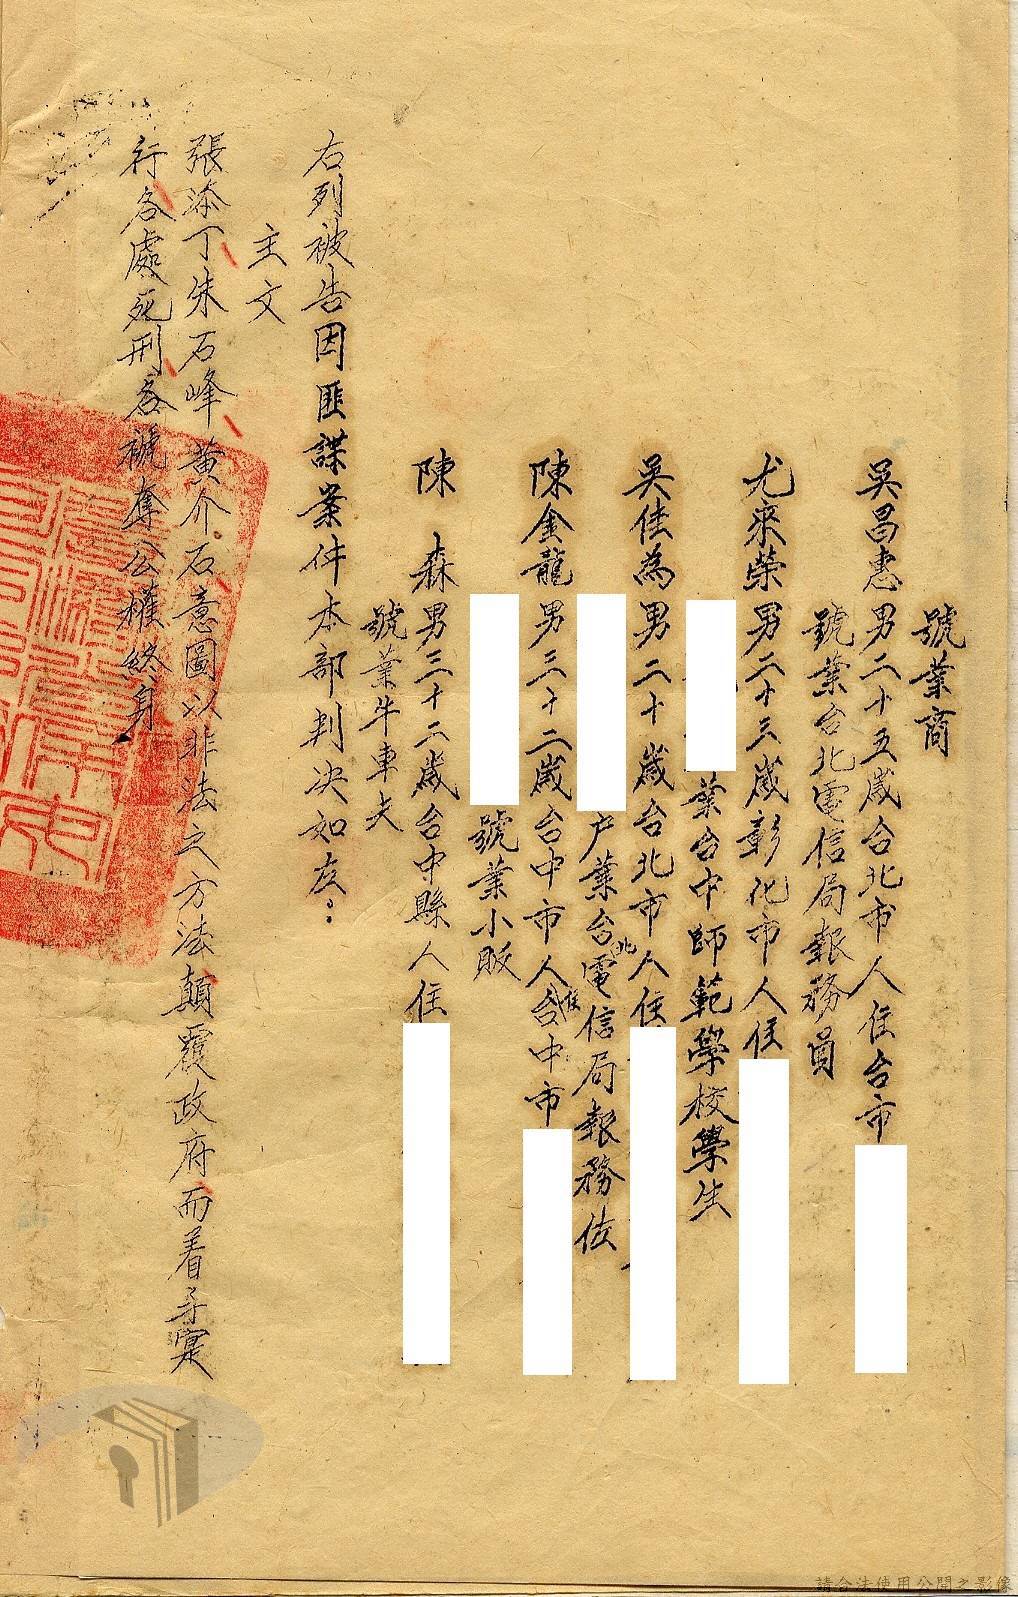 號業商
吳昌惠男二十五歲台北市人住台市
號業台北電信局報務員
尤來榮男二十三歲彰化市人住
業台中師範學校學生
吳佳為男二十歲台北市人住
户業台北電信局報務佐
陳金龍男三十二歲台中市人住台中市
號業小販
陳　森男三十二歲台中縣人住
號業牛車夫
右列被告因匪諜案件本部判决如左：
主文
張添丁朱石峰黃介石意圖以非法之方法顛覆政府而着手實
行各處死刑各褫奪公權終身
請合法使用公開之影像